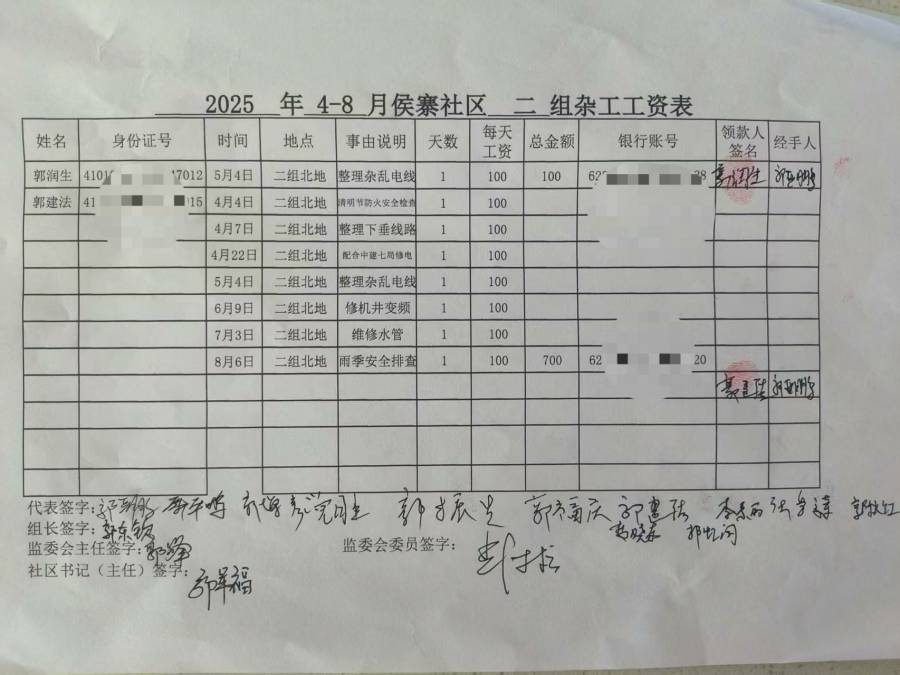 2025 年 4-8 月侯寨社区 二 组杂工工资表
姓名 身份证号 时间 地点 事由说明 天数 每天工资 总金额 银行账号 领款人签名 经手人
郭润生 4101 7012 5月4日 二组北地 整理杂乱电线 1 100 100 62 38 郭润生
郭建法 41 015 4月4日 二组北地 清明节防火安全检查 1 100
4月7日 二组北地 整理下垂线路 1 100
4月22日 二组北地 配合中建七局修电 1 100
5月4日 二组北地 整理杂乱电线 1 100
6月9日 二组北地 修机井变频 1 100
7月3日 二组北地 维修水管 1 100
8月6日 二组北地 雨季安全排查 1 100 700 62 20
郭建法
代表签字:
组长签字:
监委会主任签字: 监委会委员签字:
社区书记（主任）签字: